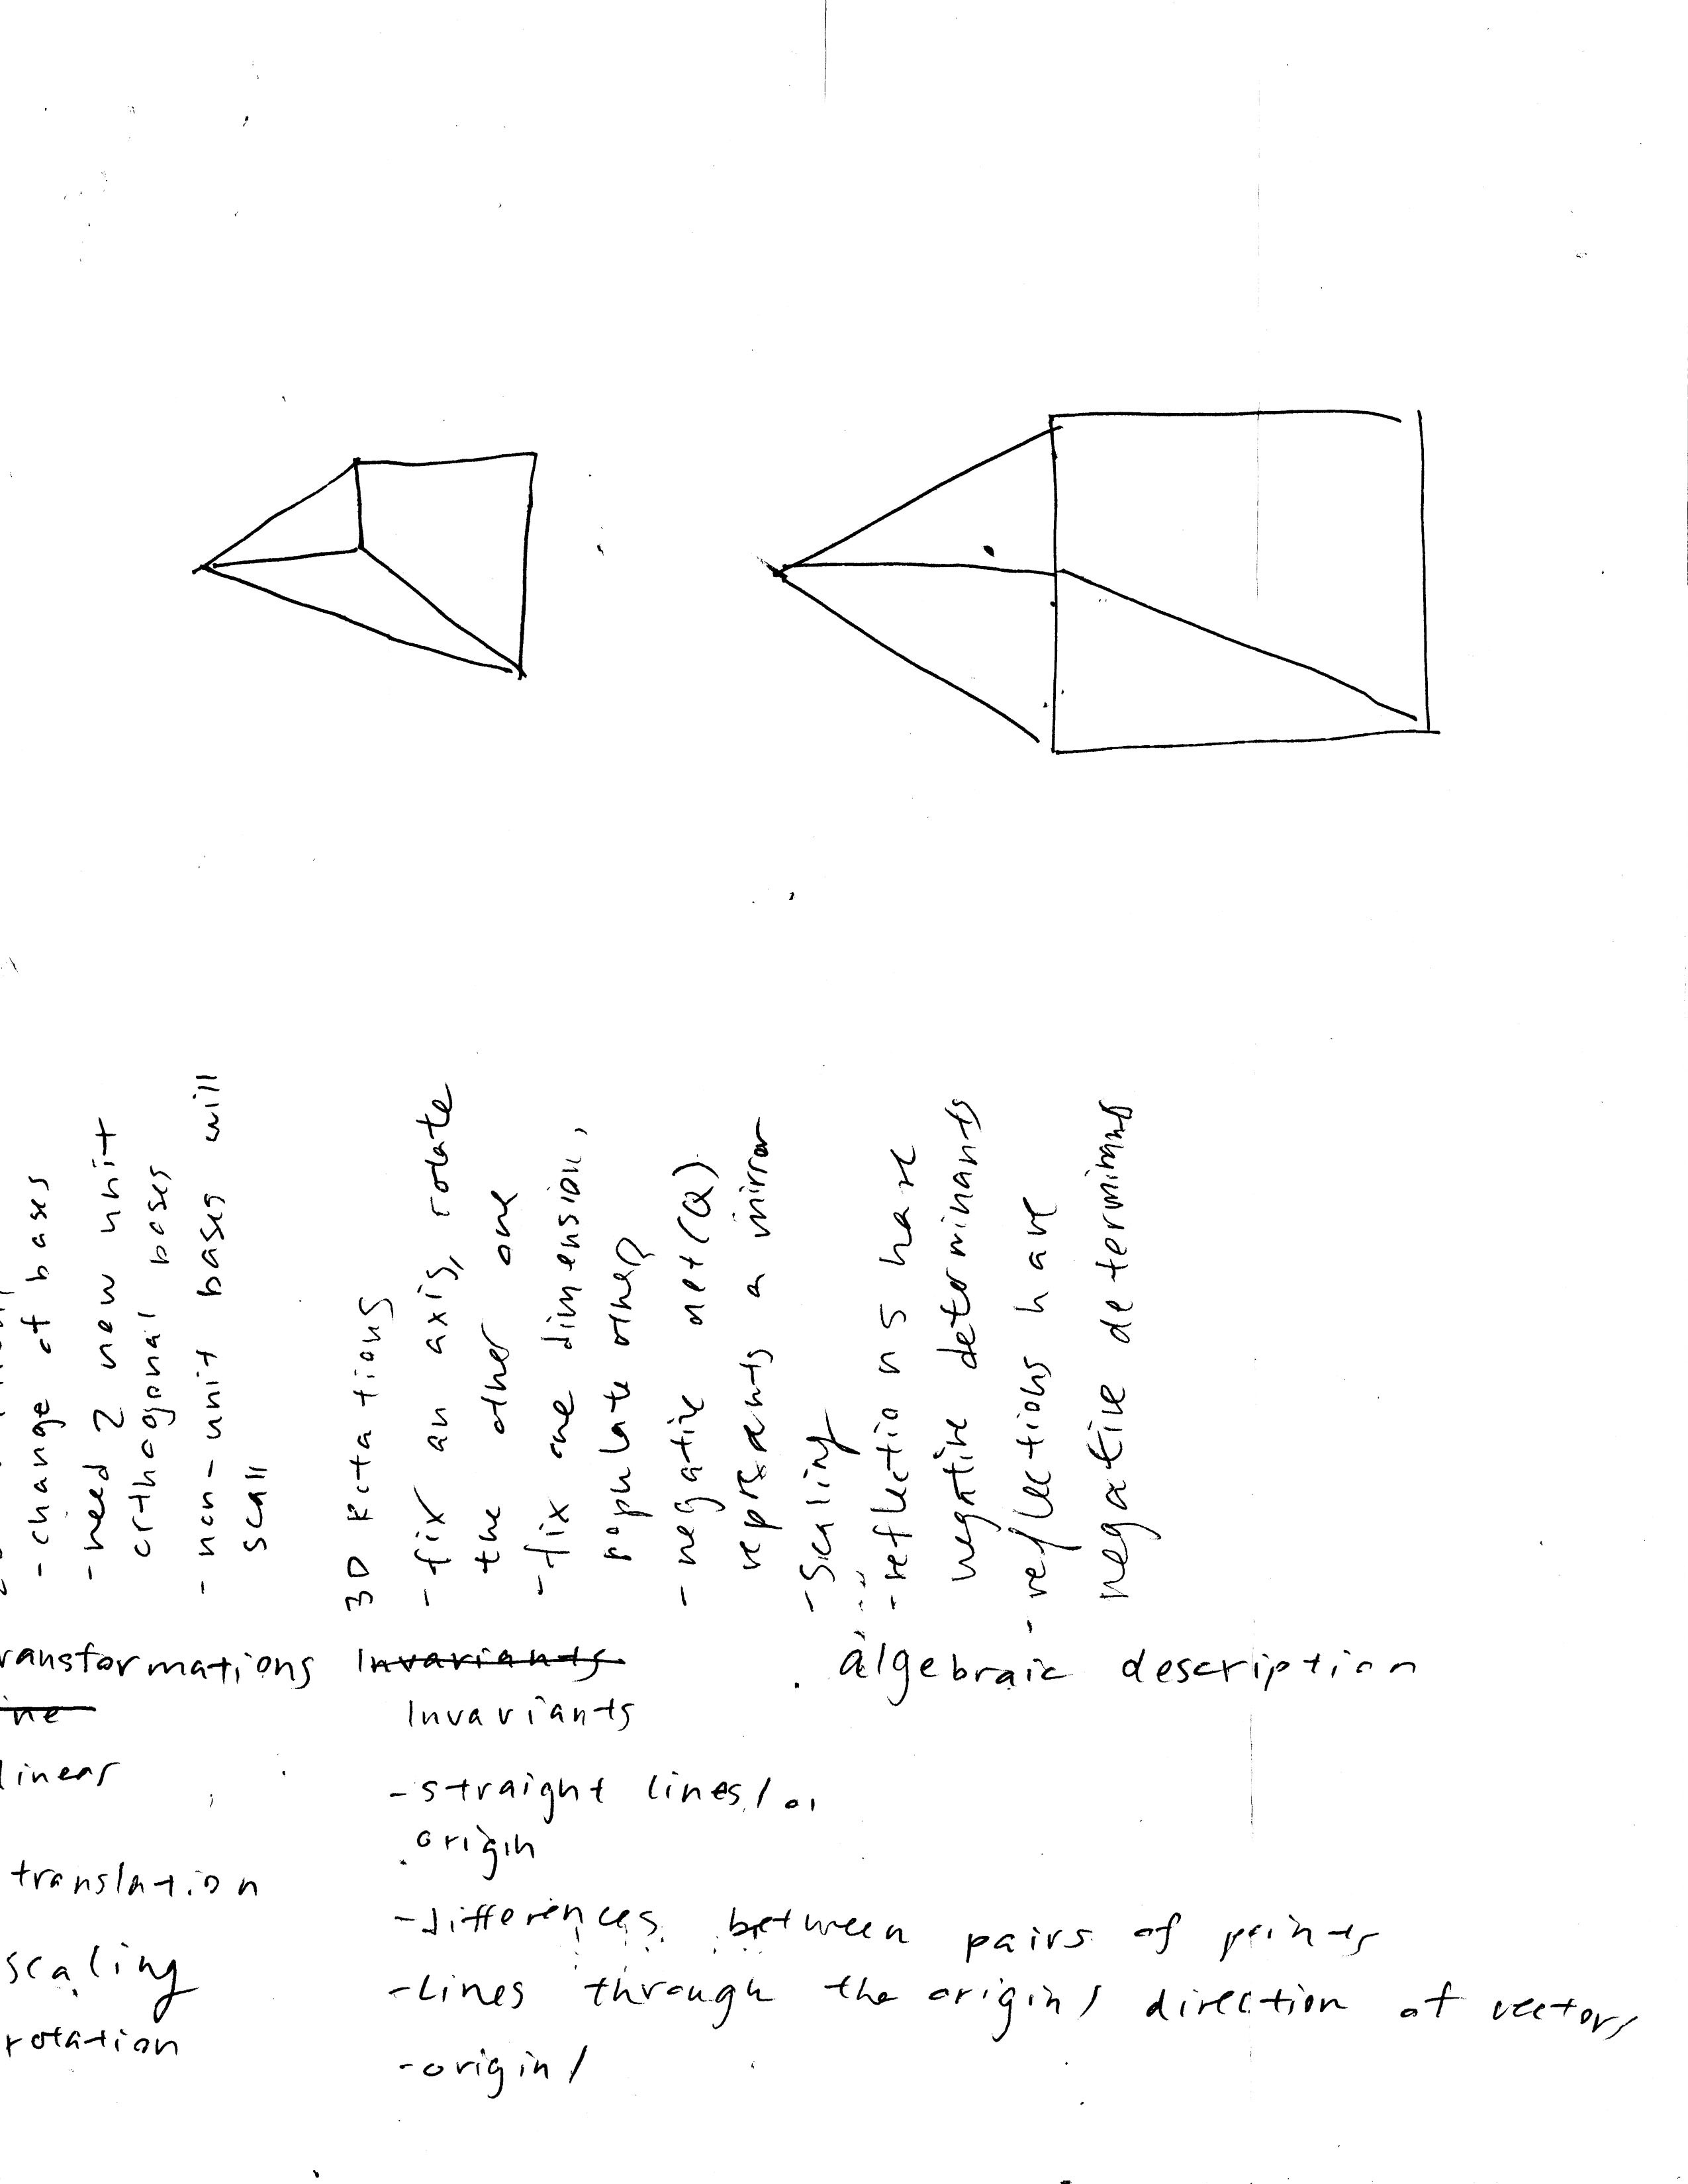 - change of bases
- need 2 new unit
orthogonal bases
- non-unit bases will
scall
3D Rotations
- fix an axis, rotate
the other one
- fix one dimension,
populate other
- negative det(Q)
represents a mirror
- Scaling
- reflections have
negative determinants
- reflections have
negative determinants
ransformations Invariants algebraic description
ine
Invariants
linear
- straight lines/
origin
translation
- differences between pairs of points
scaling
- lines through the origin/ direction of vectors
rotation
- origin/